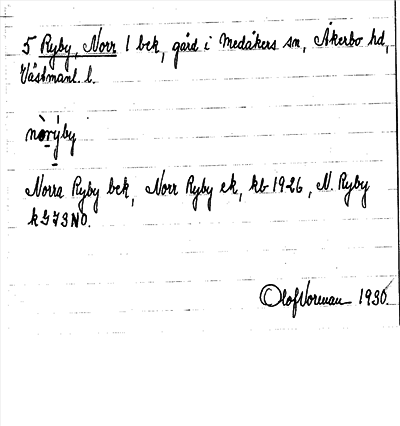 5 Ryby, Norr 1 bek, gård i Medåkers sn, Åkerbo hd,
Västmanl. l.
nòrýby
Norra Ryby bek, Norr Ryby ek, kb 1926, N. Ryby
k G73NO.
Olof Noreman 1930.